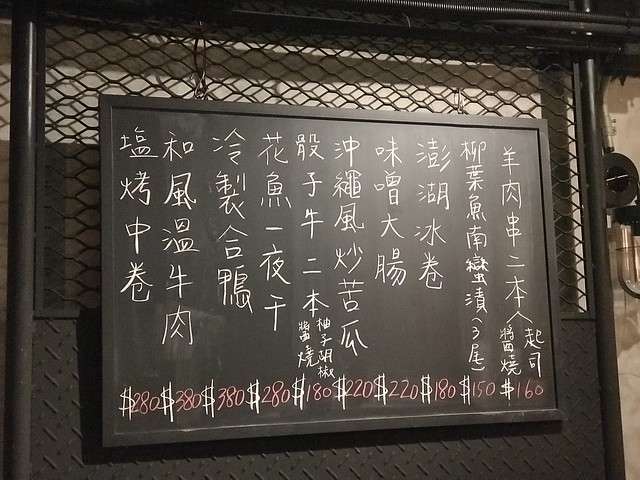 羊肉串二本(起司 醬燒 $160
柳葉魚南蠻漬(3尾) $150
澎湖冰卷 $180
味噌大腸 $220
沖繩風炒苦瓜 $220
骰子牛二本 柚子胡椒 醬燒 $180
花魚一夜干 $280
冷製合鴨 $380
和風溫牛肉 $380
塩烤中卷 $280